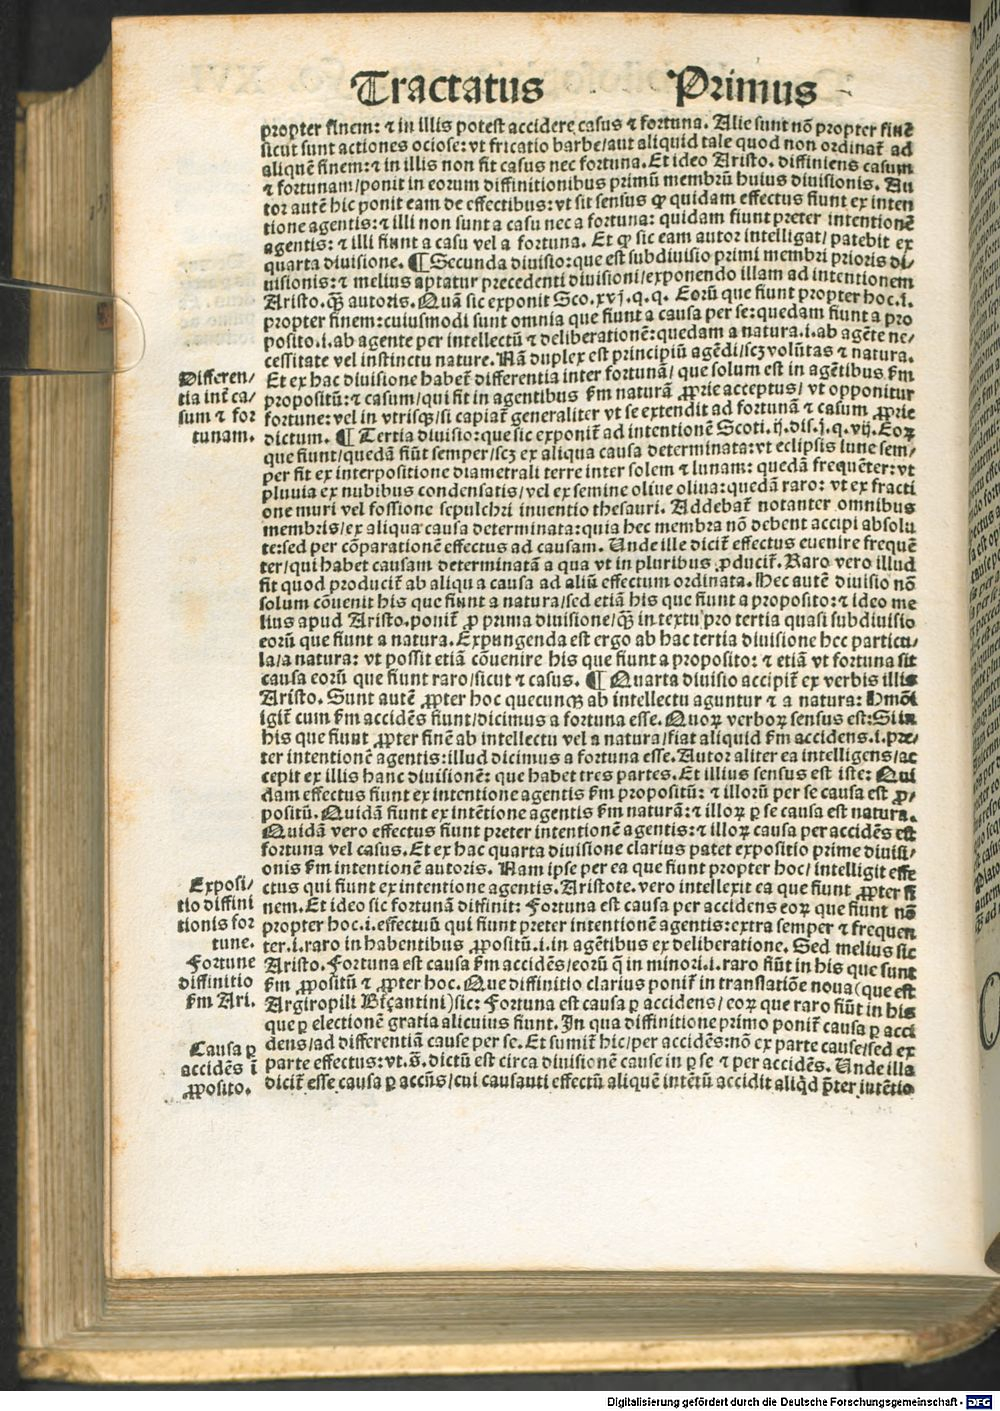 Tractatus Primus
propter finem: ⁊ in illis potest accidere casus ⁊ fortuna. Alie sunt nõ propter finẽ
sicut sunt actiones ociose: vt fricatio barbe/aut aliquid tale quod non ordinat᷑ ad
aliquẽ finem: ⁊ in illis non fit casus nec fortuna. Et ideo Aristo. diffiniens casum
⁊ fortunam/ponit in eorum diffinitionibus primũ membrũ huius diuisionis. Au
tor autẽ hic ponit eam de effectibus: vt sit sensus ꝙ quidam effectus fiunt ex inten
tione agentis: ⁊ illi non sunt a casu nec a fortuna: quidam fiunt preter intentionẽ
agentis: ⁊ illi fiunt a casu vel a fortuna. Et ꝙ sic eam autor intelligat/ patebit ex
quarta diuisione. ¶ Secunda diuisio: que est subdiuisio primi membri prioris di/
uisionis: ⁊ melius aptatur precedenti diuisioni/exponendo illam ad intentionem
Aristo. q̃ꝫ autoris. Quã sic exponit Sco. xvj. q. q. Eorũ que fiunt propter hoc .i.
propter finem: cuiusmodi sunt omnia que fiunt a causa per se: quedam fiunt a pro
posito .i. ab agente per intellectũ ⁊ deliberationẽ: quedam a natura .i. ab agẽte ne/
cessitate vel instinctu nature. Nã duplex est principiũ agẽdi/scꝫ volũtas ⁊ natura.
Et ex hac diuisione habet᷑ differentia inter fortunã/ que solum est in agẽtibus ẜm
propositũ: ⁊ casum/qui fit in agentibus ẜm naturã ꝓprie acceptus/ vt opponitur
fortune: vel in vtrisqꝫ/si capiat᷑ generaliter vt se extendit ad fortunã ⁊ casum ꝓprie
dictum. ¶ Tertia diuisio: que sic exponit᷑ ad intentionẽ Scoti .ij. dis. j. q. vij. Eoꝝ
que fiunt/quedã fiũt semper/scꝫ ex aliqua causa determinata: vt eclipsis lune sem/
per fit ex interpositione diametrali terre inter solem ⁊ lunam: quedã frequẽter: vt
pluuia ex nubibus condensatis/vel ex semine oliue oliua: quedã raro: vt ex fracti
one muri vel fossione sepulchri inuentio thesauri. Addebat᷑ notanter omnibus
membris/ex aliqua causa determinata: quia hec membra nõ debent accipi absolu
te: sed per cõparationẽ effectus ad causam. Unde ille dicit᷑ effectus euenire frequẽ
ter/qui habet causam determinatã a qua vt in pluribus ꝓducit᷑. Raro vero illud
fit quod producit᷑ ab aliqua causa ad aliũ effectum ordinata. Hec autẽ diuisio nõ
solum cõuenit his que fiunt a natura/sed etiã his que fiunt a proposito: ⁊ ideo me
lius apud Aristo. ponit᷑ ꝓ prima diuisione/q̃ꝫ in textu pro tertia quasi subdiuisio
eorũ que fiunt a natura. Expungenda est ergo ab hac tertia diuisione hec particu/
la/a natura: vt possit etiã cõuenire his que fiunt a proposito: ⁊ etiã vt fortuna sit
causa eorũ que fiunt raro/sicut ⁊ casus. ¶ Quarta diuisio accipit᷑ ex verbis illis
Aristo. Sunt autẽ ꝓpter hoc quecunqꝫ ab intellectu aguntur ⁊ a natura: Hmõi
igit᷑ cum ẜm accidẽs fiunt/dicimus a fortuna esse. Quoꝝ verboꝝ sensus est: Si in
his que fiunt ꝓpter finẽ ab intellectu vel a natura/fiat aliquid ẜm accidens .i. pre/
ter intentionẽ agentis: illud dicimus a fortuna esse. Autor aliter ea intelligens/ac
cepit ex illis hanc diuisionẽ: que habet tres partes. Et illius sensus est iste: Qui
dam effectus fiunt ex intentione agentis ẜm propositũ: ⁊ illorũ per se causa est ꝓ/
positũ. Quidã fiunt ex intẽtione agentis ẜm naturã: ⁊ illoꝝ ꝑ se causa est natura.
Quidã vero effectus fiunt preter intentionẽ agentis: ⁊ illoꝝ causa per accidẽs est
fortuna vel casus. Et ex hac quarta diuisione clarius patet expositio prime diuisi/
onis ẜm intentionẽ autoris. Nam ipse per ea que fiunt propter hoc/ intelligit effe
ctus qui fiunt ex intentione agentis. Aristote. vero intellexit ea que fiunt ꝓpter fi
nem. Et ideo sic fortunã diffinit: Fortuna est causa per accidens eoꝝ que fiunt nõ
propter hoc .i. effectuũ qui fiunt preter intentionẽ agentis: extra semper ⁊ frequen
ter .i. raro in habentibus ꝓpositũ .i. in agẽtibus ex deliberatione. Sed melius sic
Aristo. Fortuna est causa ẜm accidẽs/eorũ q̃ in minori .i. raro fiũt in his que sunt
ẜm ꝓpositũ ⁊ ꝓpter hoc. Que diffinitio clarius ponit᷑ in translatiõe noua (que est
Argiropili Biçantini) sic: Fortuna est causa ꝑ accidens/ eoꝝ que raro fiũt in his
que ꝑ electionẽ gratia alicuius fiunt. In qua diffinitione primo ponit᷑ causa ꝑ acci
dens/ad differentiã cause per se. Et sumit᷑ hic/per accidẽs: nõ ex parte cause/sed ex
parte effectus: vt .s̃. dictũ est circa diuisionẽ cause in ꝑ se ⁊ per accidẽs. Unde illa
dicit᷑ esse causa ꝑ accñs/ cui causanti effectũ aliquẽ intẽtũ accidit aliq̃d p̃ter intẽtio
Differen/
tia int᷑ ca/
sum ⁊ for
tunam.
Exposi/
tio diffini
tionis for
tune.
Fortune
diffinitio
ẜm Ari.
Causa ꝑ
accidẽs ĩ
ꝓposito.
Digitalisierung gefördert durch die Deutsche Forschungsgemeinschaft - DFG